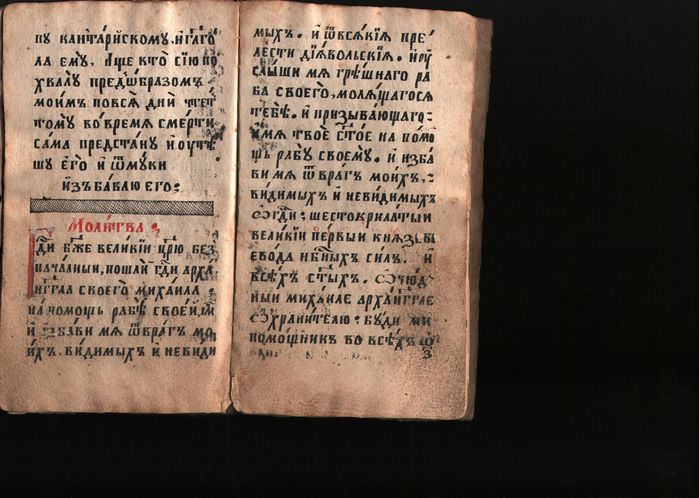 пу кантарїйскому, и҆ глаго
ла е҆мꙋ, а҆ще кто̀ сїю̀ по
хвалꙋ̀ пред̾ о҆́бразомъ
мои́мъ по всѧ̑ дни̑ чтетъ
томꙋ̀ во времѧ сме́рти
сама̀ предста́нꙋ и҆ ᲂу҆тѣ́
шꙋ є҆го̀ и҆ ѿ мꙋ́ки
и҆зъба́влю є҆го̀:
Моли́тва:
Гд҇и бж҃е вели́кїи цр҃ю̀ без
нача́лныи, пошли̑ гд҇и арха́
нг҃гла своего̀ михаи́ла:
на́ помощь рабѣ̀ свое́й, и҆м҃
и҆ и҆зба́ви мѧ ѿ вра̑гъ мо
и́хъ. ви́димыхъ и҆ неви́ди
мыхъ. и҆ ѿ всѧ́кїѧ пре
лести дїѧ́вольскїѧ. и҆ ᲂу
слы́ши мѧ грѣ́шнаго ра
ба̀ своего̀, молѧ́щагосѧ
тебѣ̀. и҆ призыва́ющаго
и҆мѧ твоѐ ст҃о́е на́ помо
щь рабꙋ̀ своемꙋ̀. и҆ и҆зба́
ви мѧ ѿ вра̑гъ мои́хъ,
ви́димыхъ и҆ неви́димыхъ
ѽ гд҇и: шестокрила́тыи
вели́кїи пе́рвыи кнѧ́зь, вы
евода̀ нб҇ныхъ си́лъ. и҆
всѣ́хъ ст҃ы́хъ. ѽ чю́д
ныи михаи́ле арха́нг҃гле
ѽ храни́телю: бꙋ́ди ми
помо́щникъ во всѣ́хъ